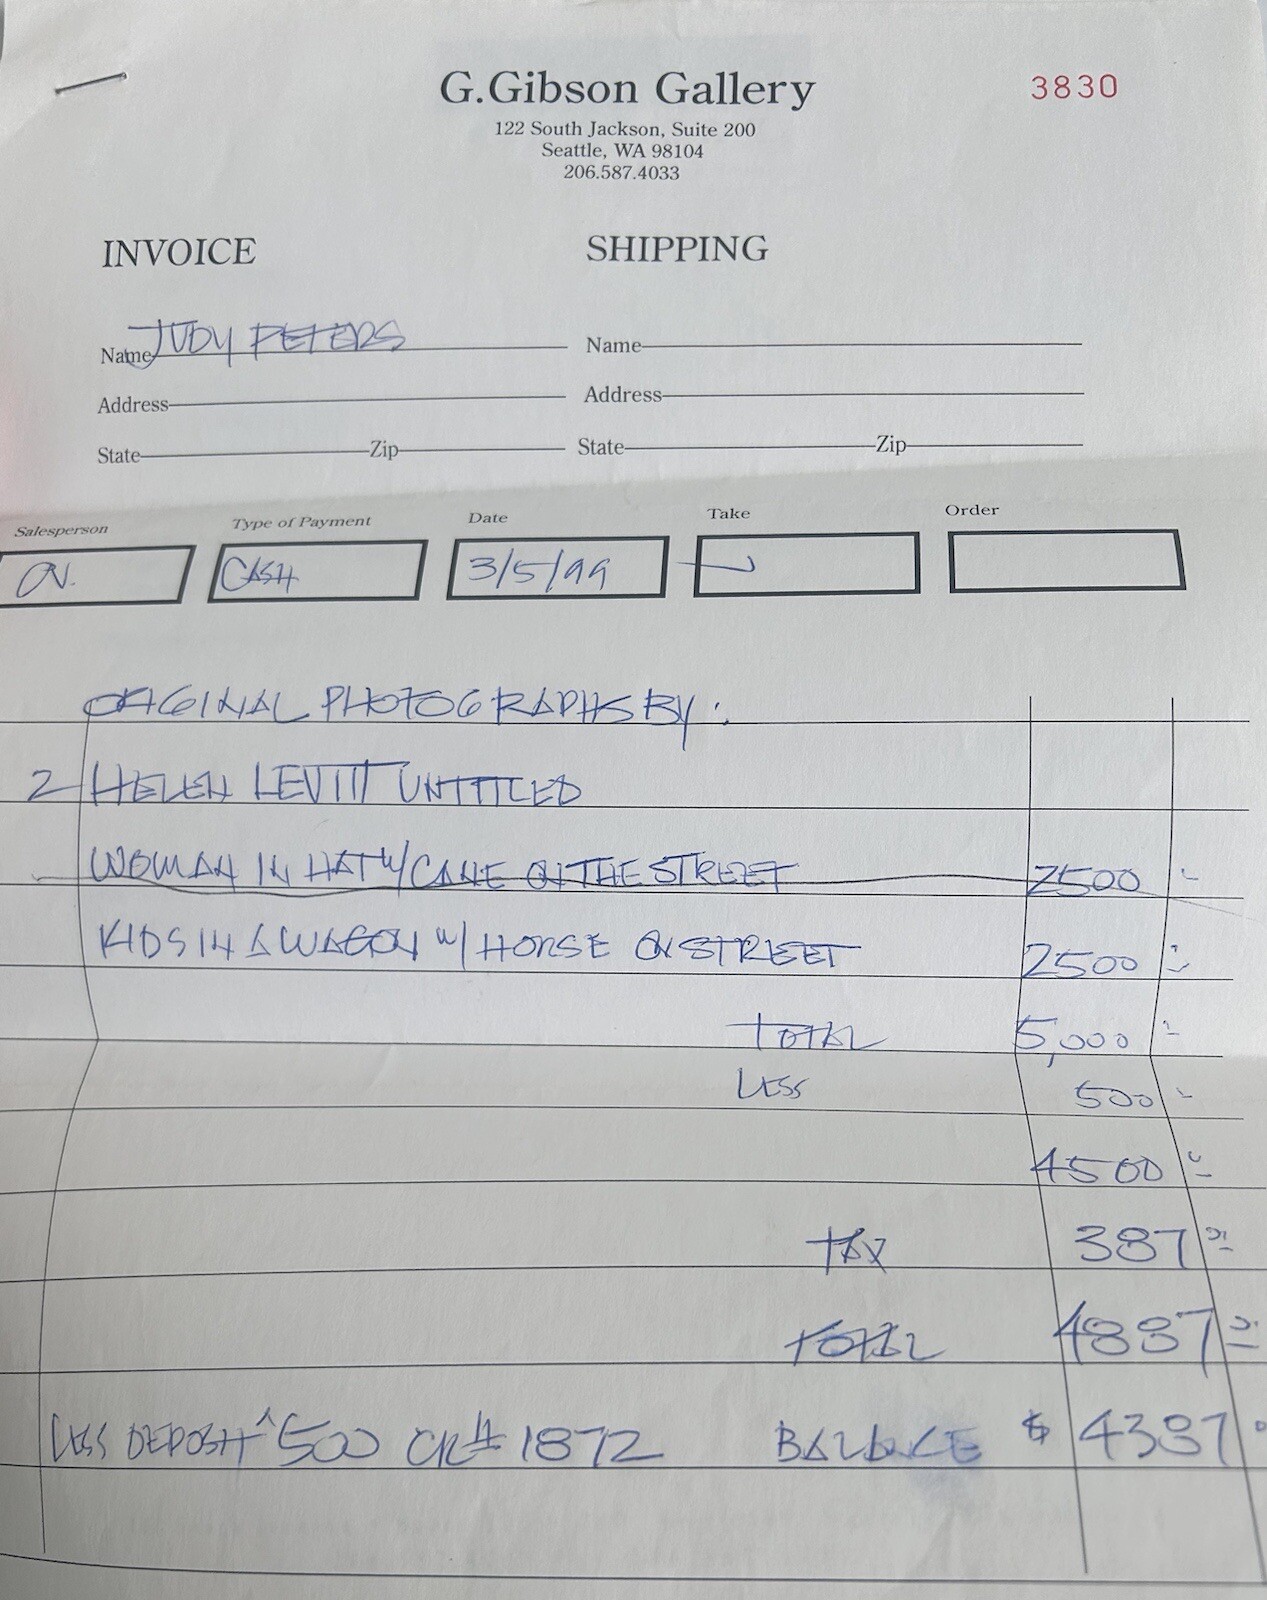 G.Gibson Gallery 3830
122 South Jackson, Suite 200
Seattle, WA 98104
206.587.4033
INVOICE SHIPPING
Name JUDY PETERS Name
Address Address
State Zip State Zip
Salesperson Type of Payment Date Take Order
CASH 3/5/99
ORIGINAL PHOTOGRAPHS BY:
2 HELEN LEVITT UNTITLED
WOMAN IN HAT W/CANE ON THE STREET 2500 -
KIDS IN A WAGON W/ HORSE ON STREET 2500 -
TOTAL 5,000 -
LESS 500 -
4500 -
TAX 387
TOTAL 4887
LESS DEPOSIT 500 CK# 1872 BALANCE $ 4387